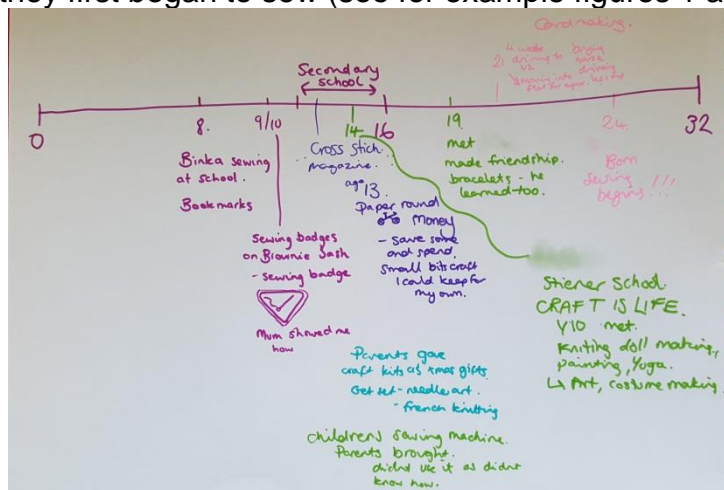 they first began to sew (see for example figures 1 a
Cardmaking.
Secondary
school
0
8.
9/10
14
16
19.
24.
32
Binka sewing
at school.
Bookmarks
Sewing badges
on Brownie Sash
- sewing badge
Mum showed me
how
Cross Stich
magazine.
age 13.
Paper round
Money
- save some
and spend.
Small bits craft
I could keep for
my own.
met
made friendship.
bracelets - he
learned too.
Born
sewing
begins!!!
Stiener School.
CRAFT IS LIFE.
Y10 met.
Kniting doll making,
painting, Yoga.
↳ Art, costume making
Parents gave
craft kits as xmas gifts
Get set - needle art.
- french knitting
Childrens sewing machine.
Parents brought.
didnt use it as didnt
know how.